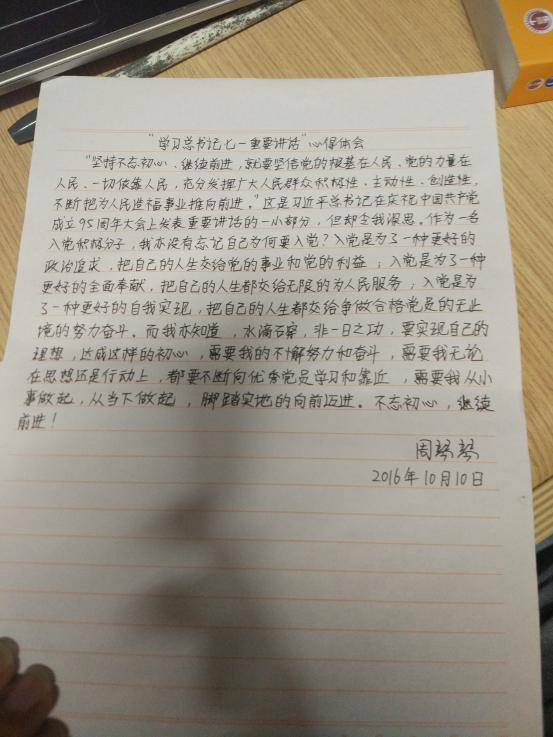 “学习总书记七一重要讲话”心得体会
“坚持不忘初心、继续前进，就要坚信党的根基在人民、党的力量在
人民，一切依靠人民，充分发挥广大人民群众积极性、主动性、创造性，
不断把为人民造福事业推向前进。”这是习近平总书记在庆祝中国共产党
成立95周年大会上发表重要讲话的一小部分，但却令我深思。作为一名
入党积极分子，我亦没有忘记自己为何要入党？入党是为了一种更好的
政治追求，把自己的人生交给党的事业和党的利益；入党是为了一种
更好的全面奉献，把自己的人生都交给无限的为人民服务；入党是为
了一种更好的自我实现，把自己的人生都交给争做合格党员的无止
境的努力奋斗。而我亦知道，水滴石穿，非一日之功，要实现自己的
理想，达成这样的初心，需要我的不懈努力和奋斗，需要我无论
在思想还是行动上，都要不断向优秀党员学习和靠近，需要我从小
事做起，从当下做起，脚踏实地的向前迈进。不忘初心，继续
前进！
周琴琴
2016年10月10日